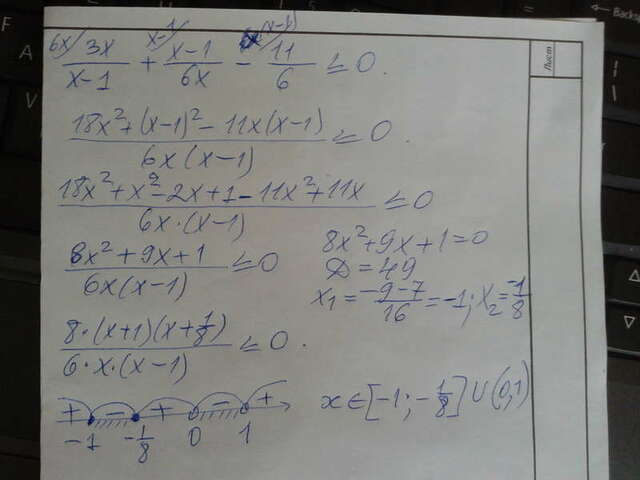 6x/ 3x/(x-1) + x-1/ (x-1)/(6x) - (x-1)/ 11/6 ≤ 0.
(18x² + (x-1)² - 11x(x-1))/(6x(x-1)) ≤ 0.
(18x² + x² - 2x + 1 - 11x² + 11x)/(6x·(x-1)) ≤ 0
(8x² + 9x + 1)/(6x(x-1)) ≤ 0
8x² + 9x + 1 = 0
D = 49
x₁ = (-9-7)/16 = -1; x₂ = -1/8
(8·(x+1)(x+1/8))/(6·x·(x-1)) ≤ 0.
+ - + - +
-1 -1/8 0 1
x ∈ [-1; -1/8] ∪ (0,1)
Лист
← Backsp
F
A
V